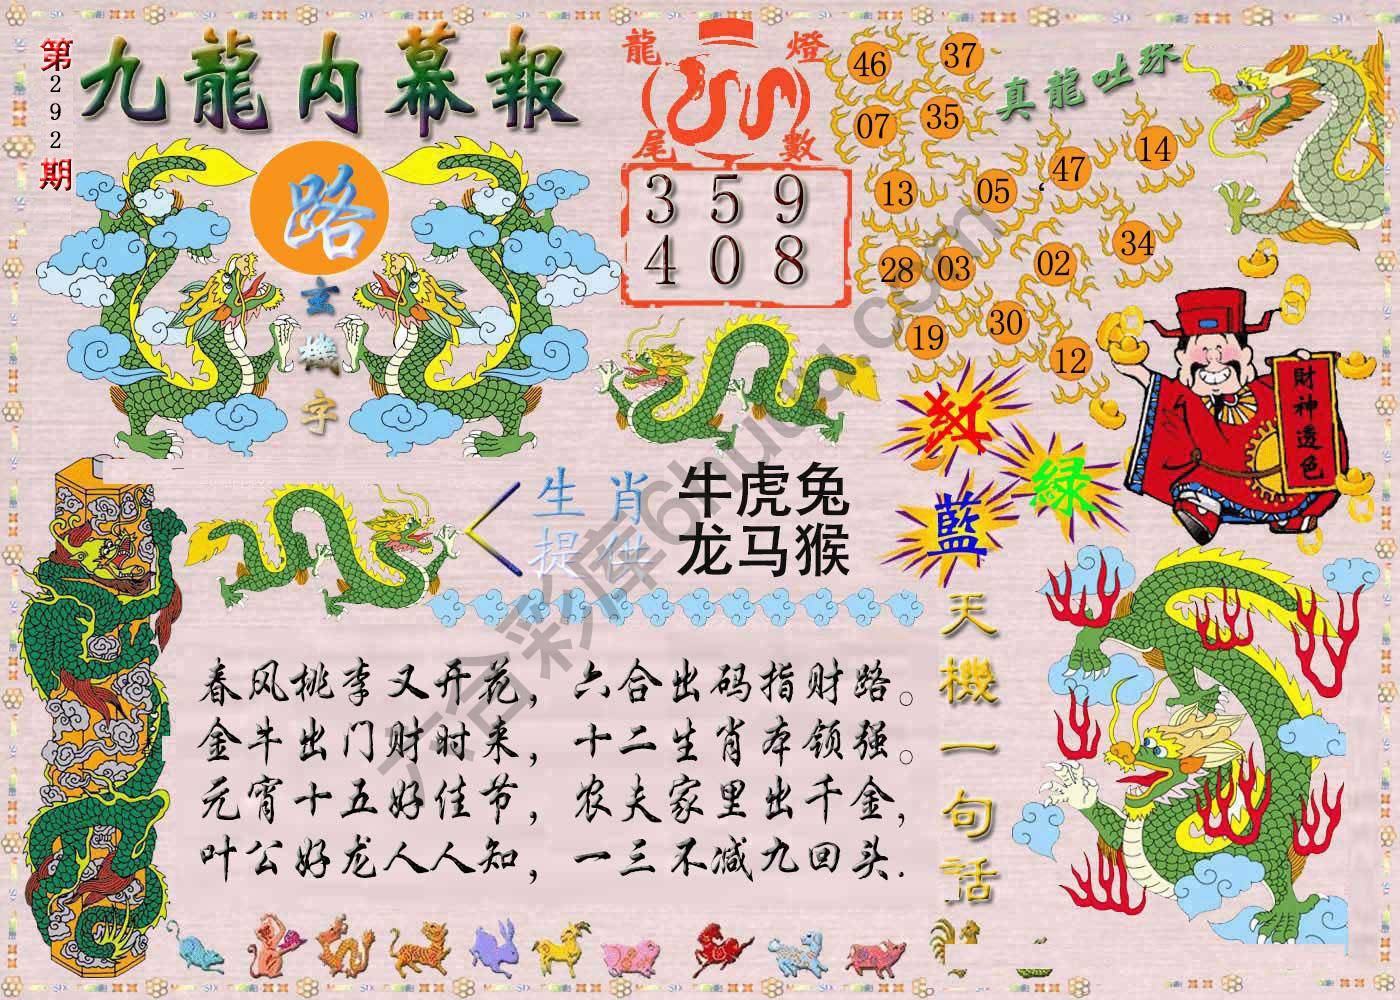 第292期
九龍内幕報
路
玄機字
龍燈尾數
3 5 9
4 0 8
真龍吐珠
46 37
07 35
13 05 47 14
28 03 02 34
19 30 12
財神透色
紅
綠
藍
生肖提供
牛虎兔
龙马猴
天機一句話
春风桃李又开花，六合出码指财路。
金牛出门财时来，十二生肖本领强。
元宵十五好佳节，农夫家里出千金，
叶公好龙人人知，一三不减九回头.
六合彩库6huu.com